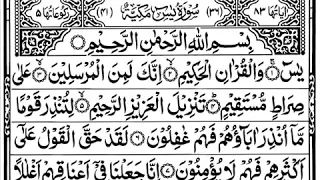 اٰیَاتُهَا ۸۳ (۳۶) سُوْرَةُ يٰسٓ مَكِّيَّةٌ (۴۱) رُكُوْعَاتُهَا ۵
بِسْمِ اللّٰهِ الرَّحْمٰنِ الرَّحِيْمِ
يٰسٓ ۝۱ وَالْقُرْاٰنِ الْحَكِيْمِ ۝۲ اِنَّكَ لَمِنَ الْمُرْسَلِيْنَ ۝۳ عَلٰى
صِرَاطٍ مُّسْتَقِيْمٍ ۝۴ تَنْزِيْلَ الْعَزِيْزِ الرَّحِيْمِ ۝۵ لِتُنْذِرَ قَوْمًا
مَّاۤ اُنْذِرَ اٰبَآؤُهُمْ فَهُمْ غٰفِلُوْنَ ۝۶ لَقَدْ حَقَّ الْقَوْلُ عَلٰۤى
اَكْثَرِهِمْ فَهُمْ لَا يُؤْمِنُوْنَ ۝۷ اِنَّا جَعَلْنَا فِيْۤ اَعْنَاقِهِمْ اَغْلٰلًا